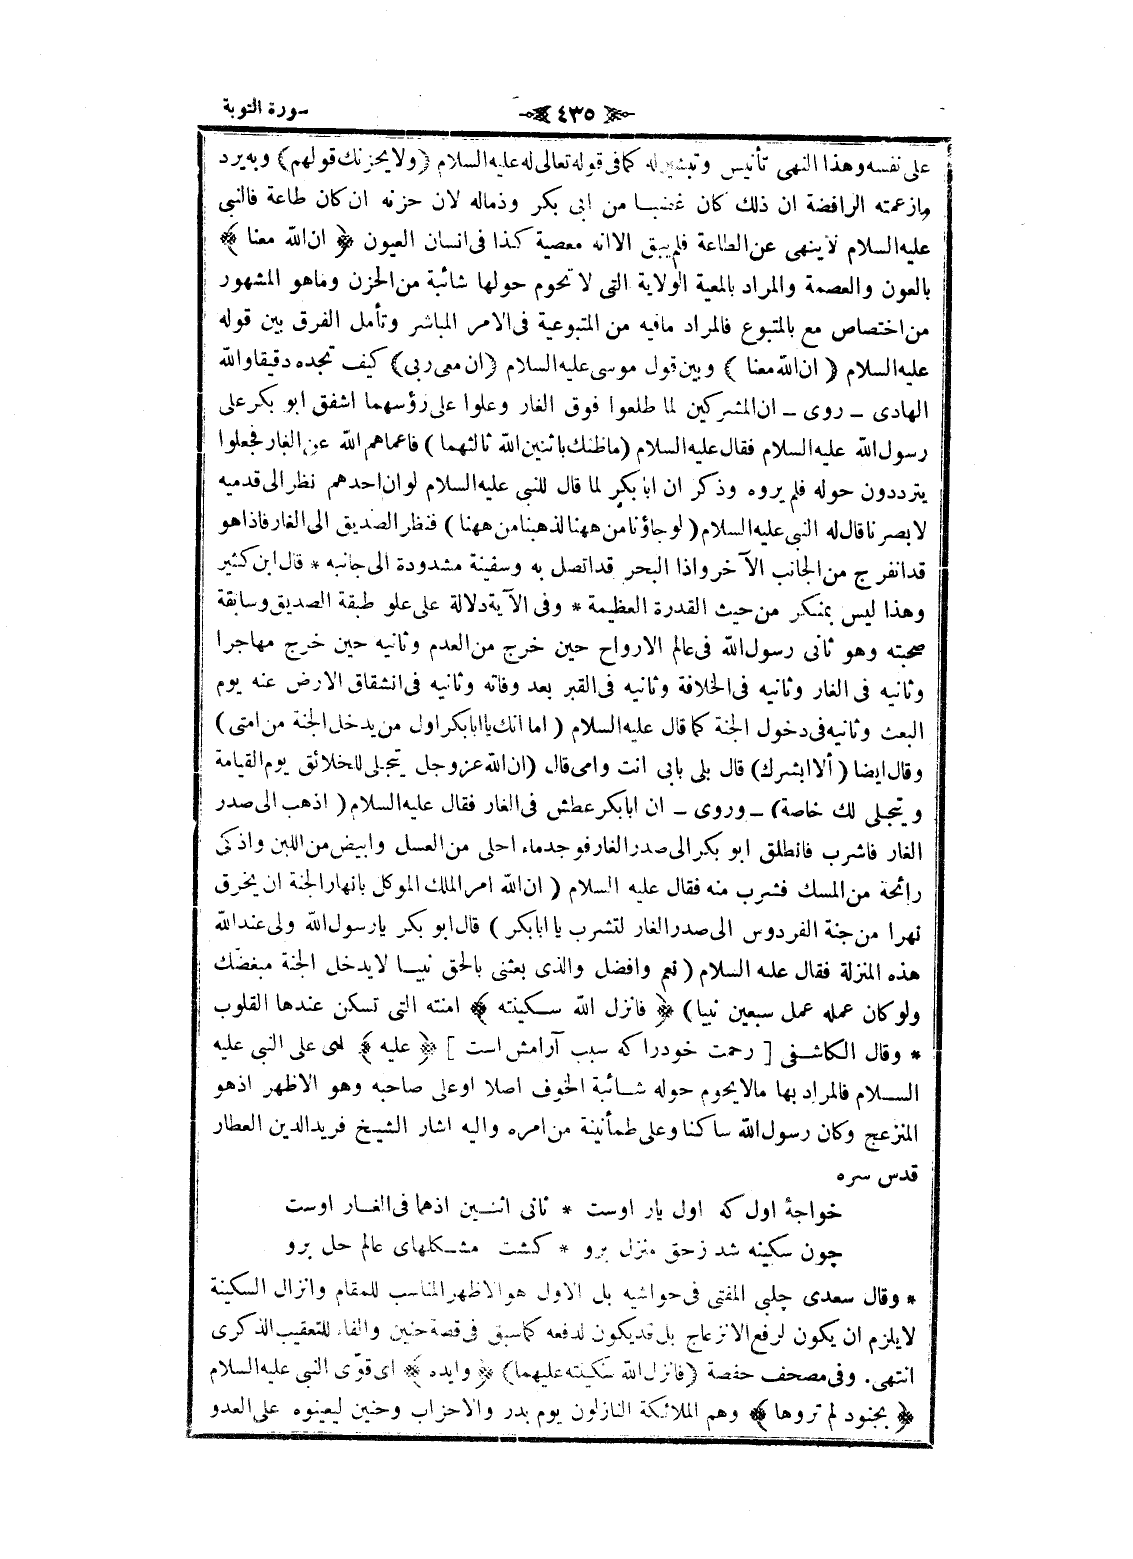 سورة التوبة
٤٣٥
على نفسه وهذا النهى تأنيس وتبشير له كما فى قوله تعالى له عليه السلام (ولا يحزنك قولهم) وبه يرد
مازعمته الرافضة ان ذلك كان غضبا من ابى بكر وذماله لان حزنه ان كان طاعة فالنبى
عليه السلام لا ينهى عن الطاعة فلم يبق الا انه معصية كذا فى انسان العيون ﴿ ان الله معنا ﴾
بالعون والعصمة والمراد بالمعية الولاية التى لا تحوم حولها شائبة من الحزن وما هو المشهور
من اختصاص مع بالمتبوع فالمراد مافيه من المتبوعية فى الامر المباشر وتأمل الفرق بين قوله
عليه السلام ( ان الله معنا ) وبين قول موسى عليه السلام (ان معى ربى) كيف تجده دقيقا والله
الهادى ـ روى ـ ان المشركين لما طلعوا فوق الغار وعلوا على رؤسهما اشفق ابو بكر على
رسول الله عليه السلام فقال عليه السلام (ماظنك باثنين الله ثالثهما) فاعماهم الله عن الغار فجعلوا
يترددون حوله فلم يروه وذكر ان ابا بكر لما قال للنبى عليه السلام لو ان احدهم نظر الى قدميه
لابصرنا قال له النبى عليه السلام (لو جاؤنا من ههنا لذهبنا من ههنا) فنظر الصديق الى الغار فاذا هو
قد انفرج من الجانب الآخر واذا البحر قد اتصل به وسفينة مشدودة الى جانبه * قال ابن كثير
وهذا ليس بمنكر من حيث القدرة العظيمة * وفى الآية دلالة على علو طبقة الصديق وسابقة
صحبته وهو ثانى رسول الله فى عالم الارواح حين خرج من العدم وثانيه حين خرج مهاجرا
وثانيه فى الغار وثانيه فى الخلافة وثانيه فى القبر بعد وفاته وثانيه فى انشقاق الارض عنه يوم
البعث وثانيه فى دخول الجنة كما قال عليه السلام ( اما انك يا ابا بكر اول من يدخل الجنة من امتى )
وقال ايضا ( ألا ابشرك) قال بلى بابى انت وامى قال (ان الله عز وجل يتجلى للخلائق يوم القيامة
ويتجلى لك خاصة) ـ وروى ـ ان ابا بكر عطش فى الغار فقال عليه السلام ( اذهب الى صدر
الغار فاشرب فانطلق ابو بكر الى صدر الغار فوجد ماء احلى من العسل وابيض من اللبن واذكى
رائحة من المسك فشرب منه فقال عليه السلام ( ان الله امر الملك الموكل بانهار الجنة ان يخرق
نهرا من جنة الفردوس الى صدر الغار لتشرب يا ابا بكر ) قال ابو بكر يا رسول الله ولى عند الله
هذه المنزلة فقال عليه السلام ( نعم وافضل والذى بعثنى بالحق نبيا لا يدخل الجنة مبغضك
ولو كان عمله عمل سبعين نبيا) ﴿ فانزل الله سكينته ﴾ امنته التى تسكن عندها القلوب
* وقال الكاشفى [ رحمت خودرا كه سبب آرامش است ] ﴿ عليه ﴾ اى على النبى عليه
السلام فالمراد بها مالا يحوم حوله شائبة الخوف اصلا او على صاحبه وهو الاظهر اذ هو
المنزعج وكان رسول الله ساكنا وعلى طمأنينة من امره واليه اشار الشيخ فريد الدين العطار
قدس سره
خواجۀ اول كه اول يار اوست * ثانى اثنين اذهما فى الغار اوست
چون سكينه شد زحق منزل برو * كشت مشكلهاى عالم حل برو
* وقال سعدى چلبى المفتى فى حواشيه بل الاول هو الاظهر المناسب للمقام وانزال السكينة
لا يلزم ان يكون لرفع الانزعاج بل قد يكون لدفعه كما سبق فى قصة حنين والفاء للتعقيب الذكرى
انتهى. وفى مصحف حفصة (فانزل الله سكينته عليهما) ﴿ وايده ﴾ اى قوّى النبى عليه السلام
﴿ بجنود لم تروها ﴾ وهم الملائكة النازلون يوم بدر والاحزاب وحنين ليعينوه على العدو